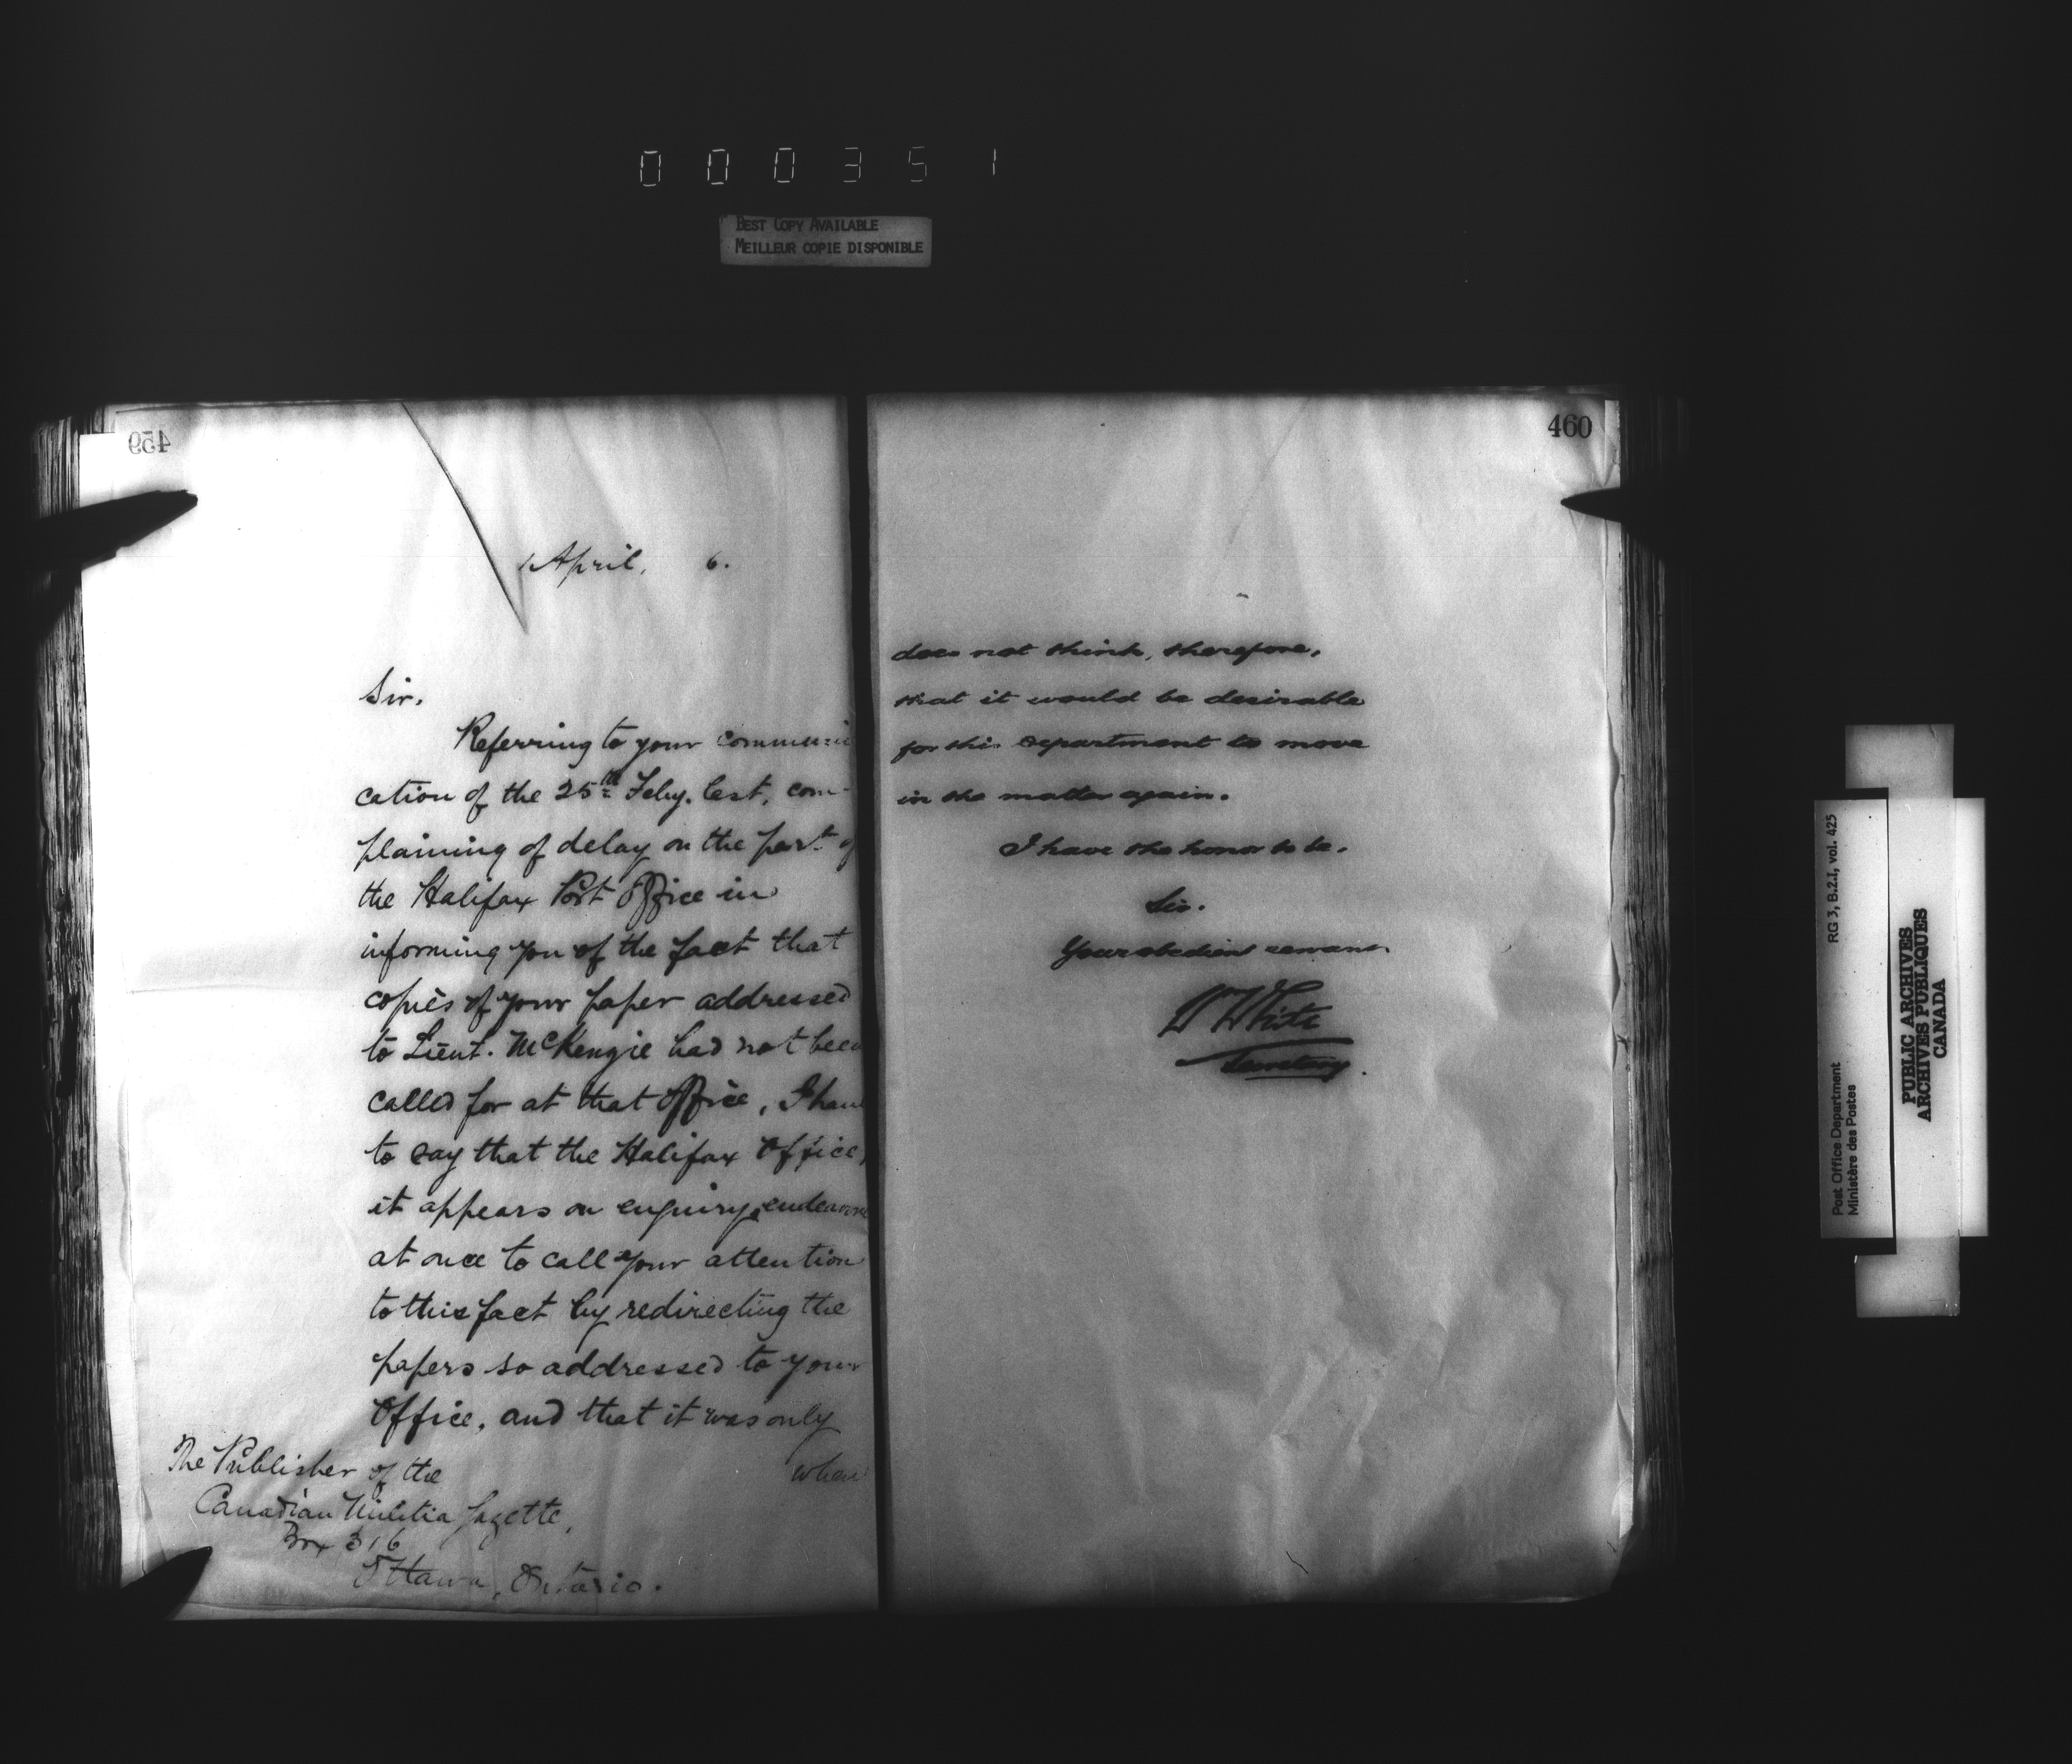 000351
BEST COPY AVAILABLE
MEILLEUR COPIE DISPONIBLE
459
April, 6.
Sir,
Referring to your communi
cation of the 25th Feby. last, com-
plaining of delay on the part of
the Halifax Post Office in
informing you of the fact that
copies of your paper addressed
to Lieut. McKenzie had not been
called for at that Office, I have
to say that the Halifax Office,
it appears on enquiry, endeavore
at once to call your attention
to this fact by redirecting the
papers so addressed to your
Office, and that it was only
when
The Publisher of the
Canadian Militia Gazette,
Box 316
Ottawa, Ontario.
460
does not think, therefore,
that it would be desirable
for this Department to move
in the matter again.
I have the honor to be,
Sir,
Your obedient servant
W White
Secretary.
RG 3, B.2.I, vol. 425
Post Office Department
Ministère des Postes
PUBLIC ARCHIVES
ARCHIVES PUBLIQUES
CANADA